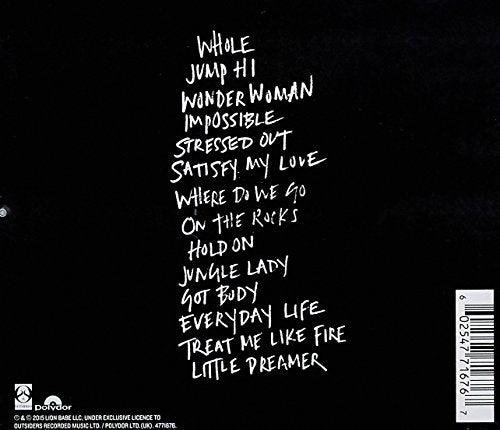 WHOLE
JUMP HI
WONDER WOMAN
IMPOSSIBLE
STRESSED OUT
SATISFY MY LOVE
WHERE DO WE GO
ON THE ROCKS
HOLD ON
JUNGLE LADY
GOT BODY
EVERYDAY LIFE
TREAT ME LIKE FIRE
LITTLE DREAMER
6 02547 71676 7
Polydor
℗ & © 2015 LION BABE LLC, UNDER EXCLUSIVE LICENCE TO
OUTSIDERS RECORDED MUSIC LTD. / POLYDOR LTD. (UK). 4771676.